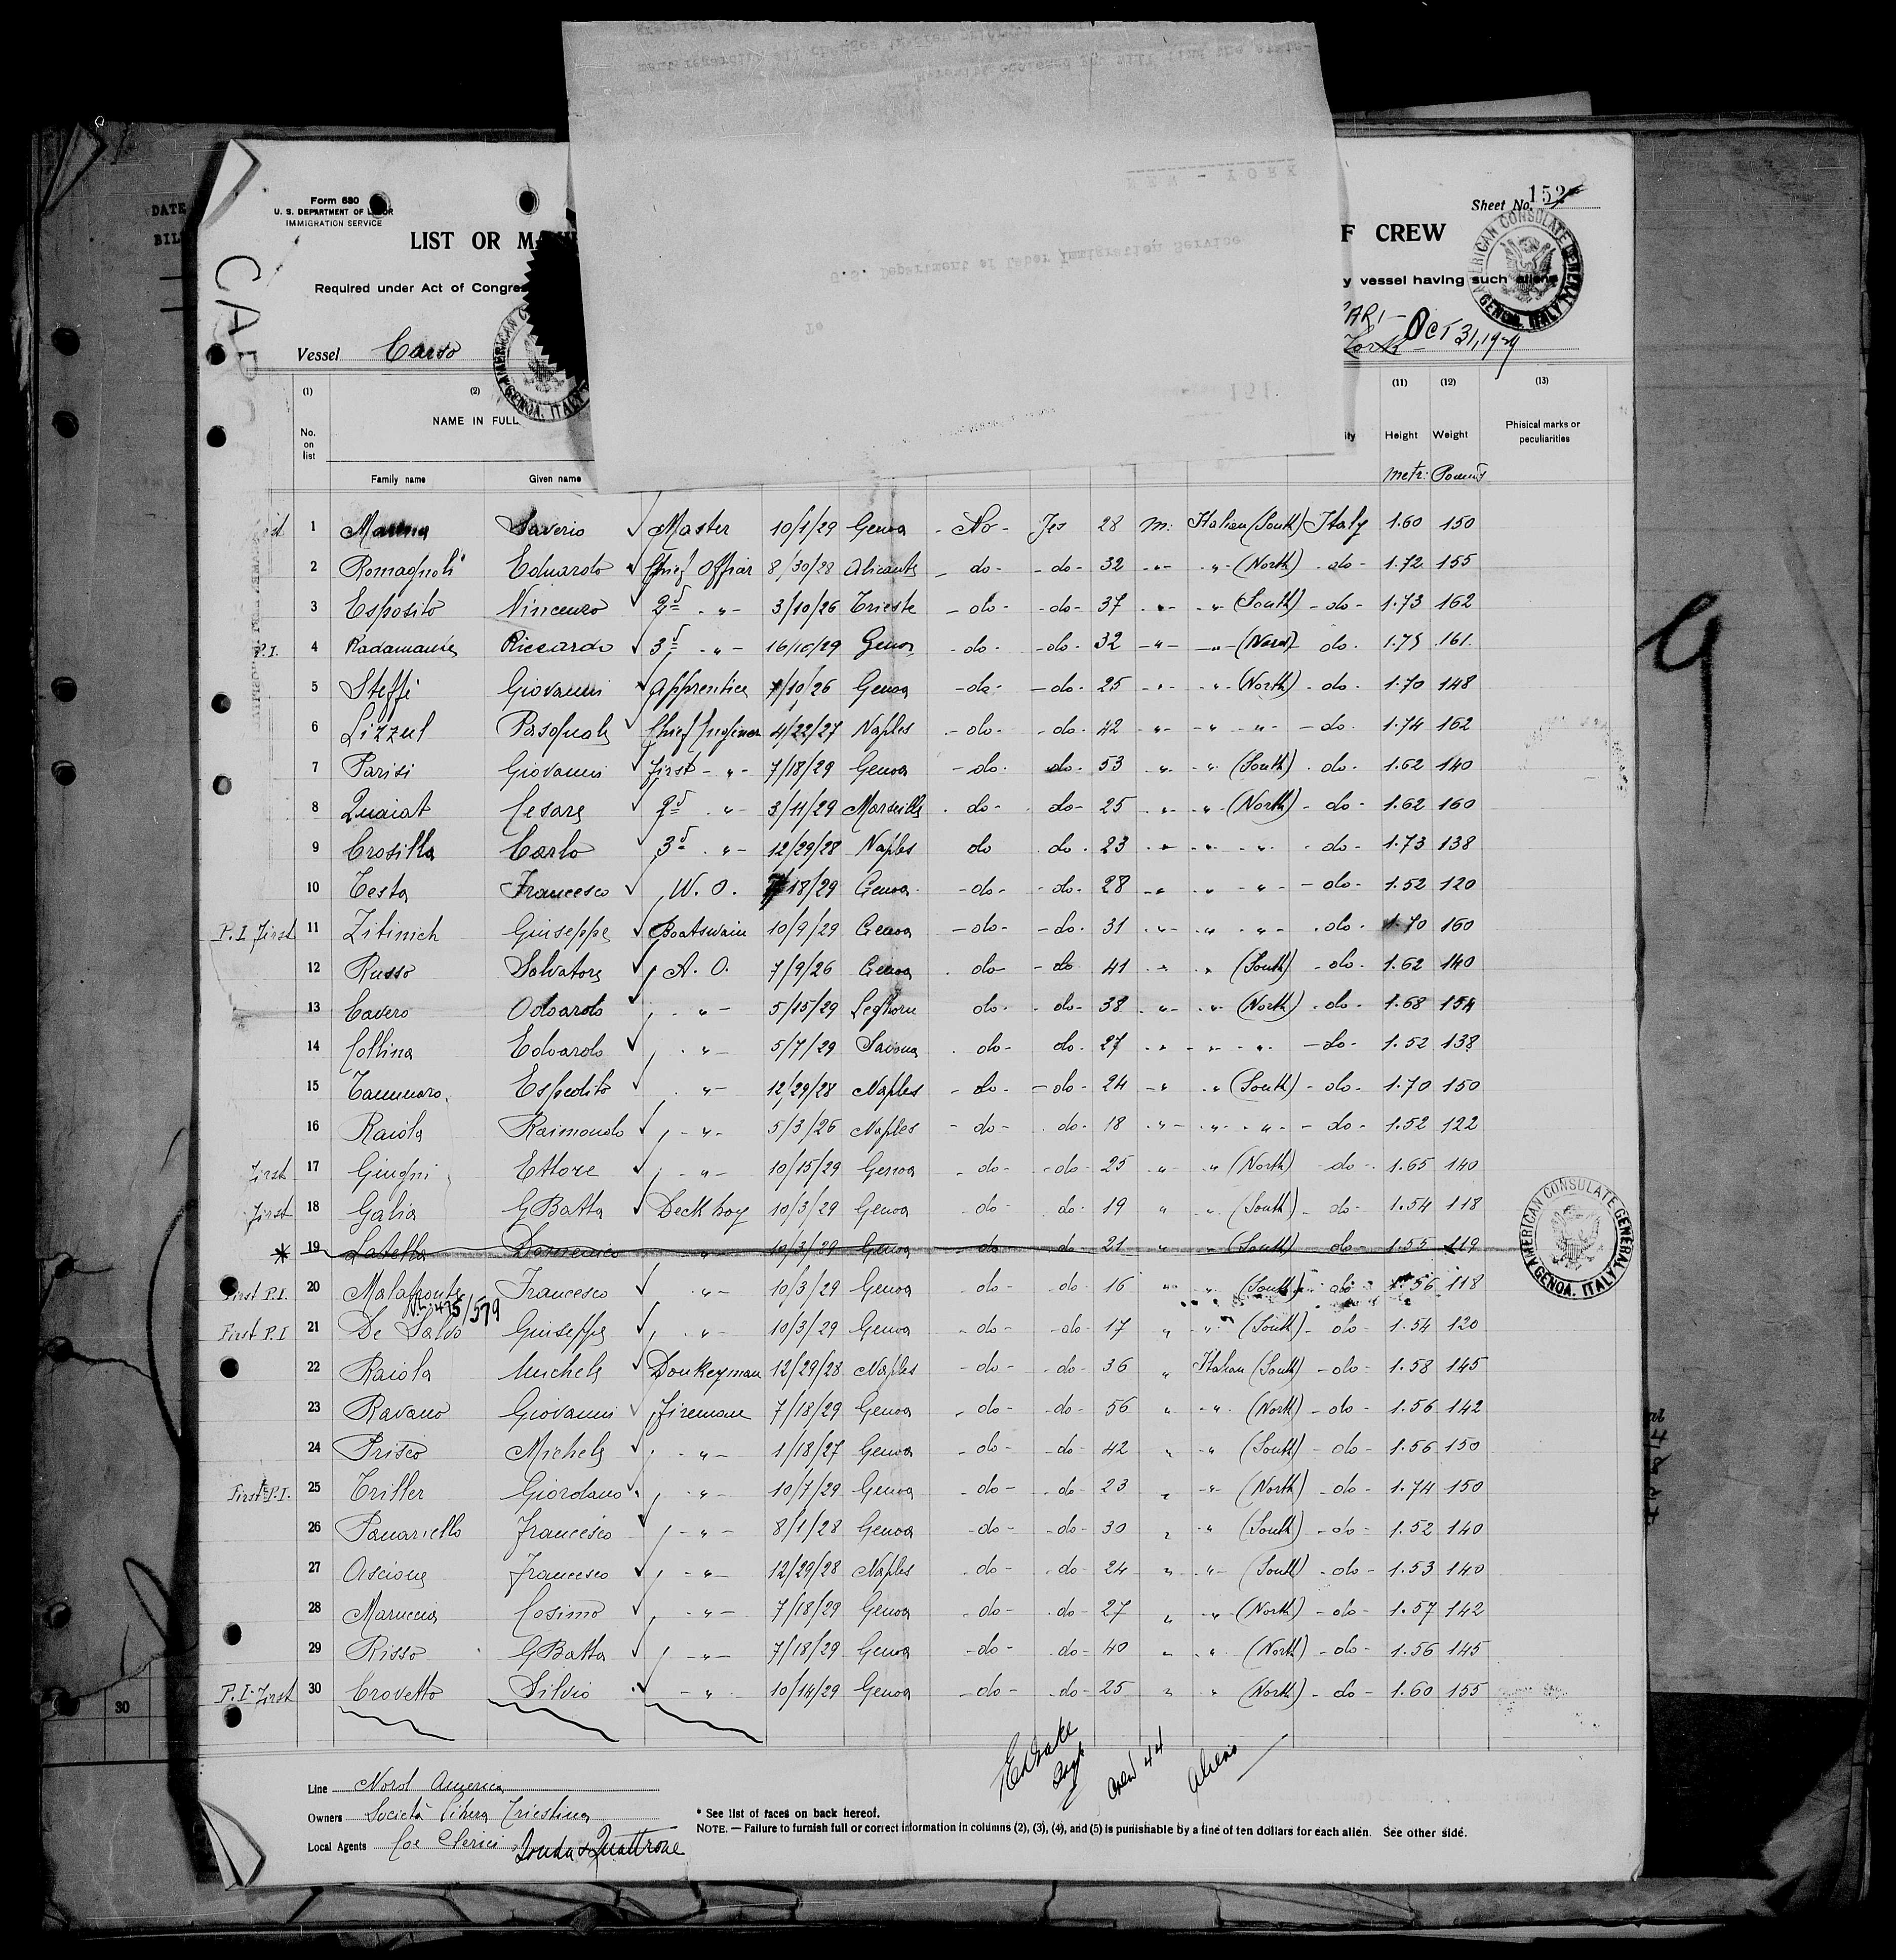 Form 680
U. S. DEPARTMENT OF LABOR
IMMIGRATION SERVICE
Sheet No. 152
LIST OR MA
F CREW
Required under Act of Congres
y vessel having such aliens
AMERICAN CONSULATE GENERAL GENOA, ITALY
CAP
NEW - YORK
U.S. Department of Labor Immigration Service
To
151
Oct 31, 1929
Vessel Carso
(1) (2) (11) (12) (13)
No. on list NAME IN FULL Height Weight Phisical marks or peculiarities
Family name Given name Metr. Pounds
1 Saverio Master 10/1/29 Genoa - No - Yes 28 m. Italian (South) Italy 1.60 150
2 Romagnoli Eduardo Chief Officer 8/30/28 Alicante - do - - do - 32 - " - - " - (North) - do - 1.72 155
3 Esposito Vincenzo 2d - " - 3/10/26 Trieste - do - - do - 37 - " - - " (South) - do - 1.73 162
P.I. 4 Riccardo 3d - " - 16/10/29 Genoa - do - - do - 32 - " - - " - (Nord) do - 1.75 161
5 Steffè Giovanni Apprentice 7/10/26 Genoa - do - - do - 25 - " - - " (North) - do - 1.70 148
6 Lizzul Pasquale Chief Engineer 4/22/27 Naples - do - - do - 42 - " - - " - " - - do - 1.74 162
7 Parisi Giovanni First - " - 7/18/29 Genoa - do - do - 53 " - " (South) - do - 1.62 140
8 Quaiat Cesare 2d - " 3/11/29 Marseille - do - do - 25 - " - " (North) - do - 1.62 160
9 Crosilla Carlo 3d - " - 12/29/28 Naples do - do - 23 - " - " - " - do - 1.73 138
10 Testa Francesco W. O. 7/18/29 Genoa - do - - do - 28 - " " - " - - do - 1.52 120
P.I. First 11 Zitinich Giuseppe Boatswain 10/9/29 Genoa - do - - do - 31 - " - " - " - - do - 1.70 160
12 Russo Salvatore A. O. 7/9/26 Genoa - do - - do 41 - " " (South) - do - 1.62 140
13 Cavero Odoardo - " - 5/15/29 Leghorn do - - do - 38 - " - - " (North) - do - 1.68 154
14 Collina Edoardo - " - 5/7/29 Savona - do - do - 27 - " - " - " - do - 1.52 138
15 Espedito - " - 12/29/28 Naples - do - - do - 24 - " " (South) - do - 1.70 150
16 Raiola Raimondo - " - 5/3/26 Naples - do - - do - 18 - " - " - " - - do - 1.52 122
First 17 Giugni Ettore - " - 10/15/29 Genoa - do - - do - 25 " " (North) - do - 1.65 140
First 18 Galia G Batta Deck boy 10/3/29 Genoa - do - do - 19 " " (South) - do - 1.54 118
* 19 Latella Domenico " 10/3/29 Genoa - do - do - 21 " " (South) - do - 1.55 119
First P.I. 20 Malafronte Francesco - " - 10/3/29 Genoa - do - do - 16 " " (South) - do - 1.56 118
475/579
First P.I 21 De Salvo Giuseppe - " - 10/3/29 Genoa - do - - do - 17 " " (South) - do - 1.54 120
22 Raiola Michele Donkeyman 12/29/28 Naples - do - - do - 36 " Italian (South) - do - 1.58 145
23 Ravano Giovanni Firemane 7/18/29 Genoa - do - - do - 56 " - " (North) - do - 1.56 142
24 Prisco Michele - " - 1/18/27 Genoa - do - - do - 42 " - " (South) - do - 1.56 150
First P.I. 25 Triller Giordano - " - 10/7/29 Genoa - do - - do - 23 " - " (North) - do - 1.74 150
26 Panariello Francesco - " - 8/1/28 Genoa - do - - do - 30 " - " (South) - do - 1.52 140
27 Ascione Francesco - " - 12/29/28 Naples - do - - do - 24 " - " - (South) - do - 1.53 140
28 Maruccia Cosimo - " - 7/18/29 Genoa - do - - do - 27 " - " (North) - do - 1.57 142
29 Risso G Batta - " - 7/18/29 Genoa - do - - do - 40 " - " (North) - do - 1.56 145
P.I. First 30 Crovetto Silvio - " 10/14/29 Genoa - do - - do - 25 " " (North) - do - 1.60 155
Crew 44 aliens
Line Nord America
Owners Società Libera Triestina
Local Agents Coe Clerici
* See list of races on back hereof.
NOTE. — Failure to furnish full or correct information in columns (2), (3), (4), and (5) is punishable by a fine of ten dollars for each alien. See other side.
AMERICAN CONSULATE GENERAL GENOA. ITALY
30
9